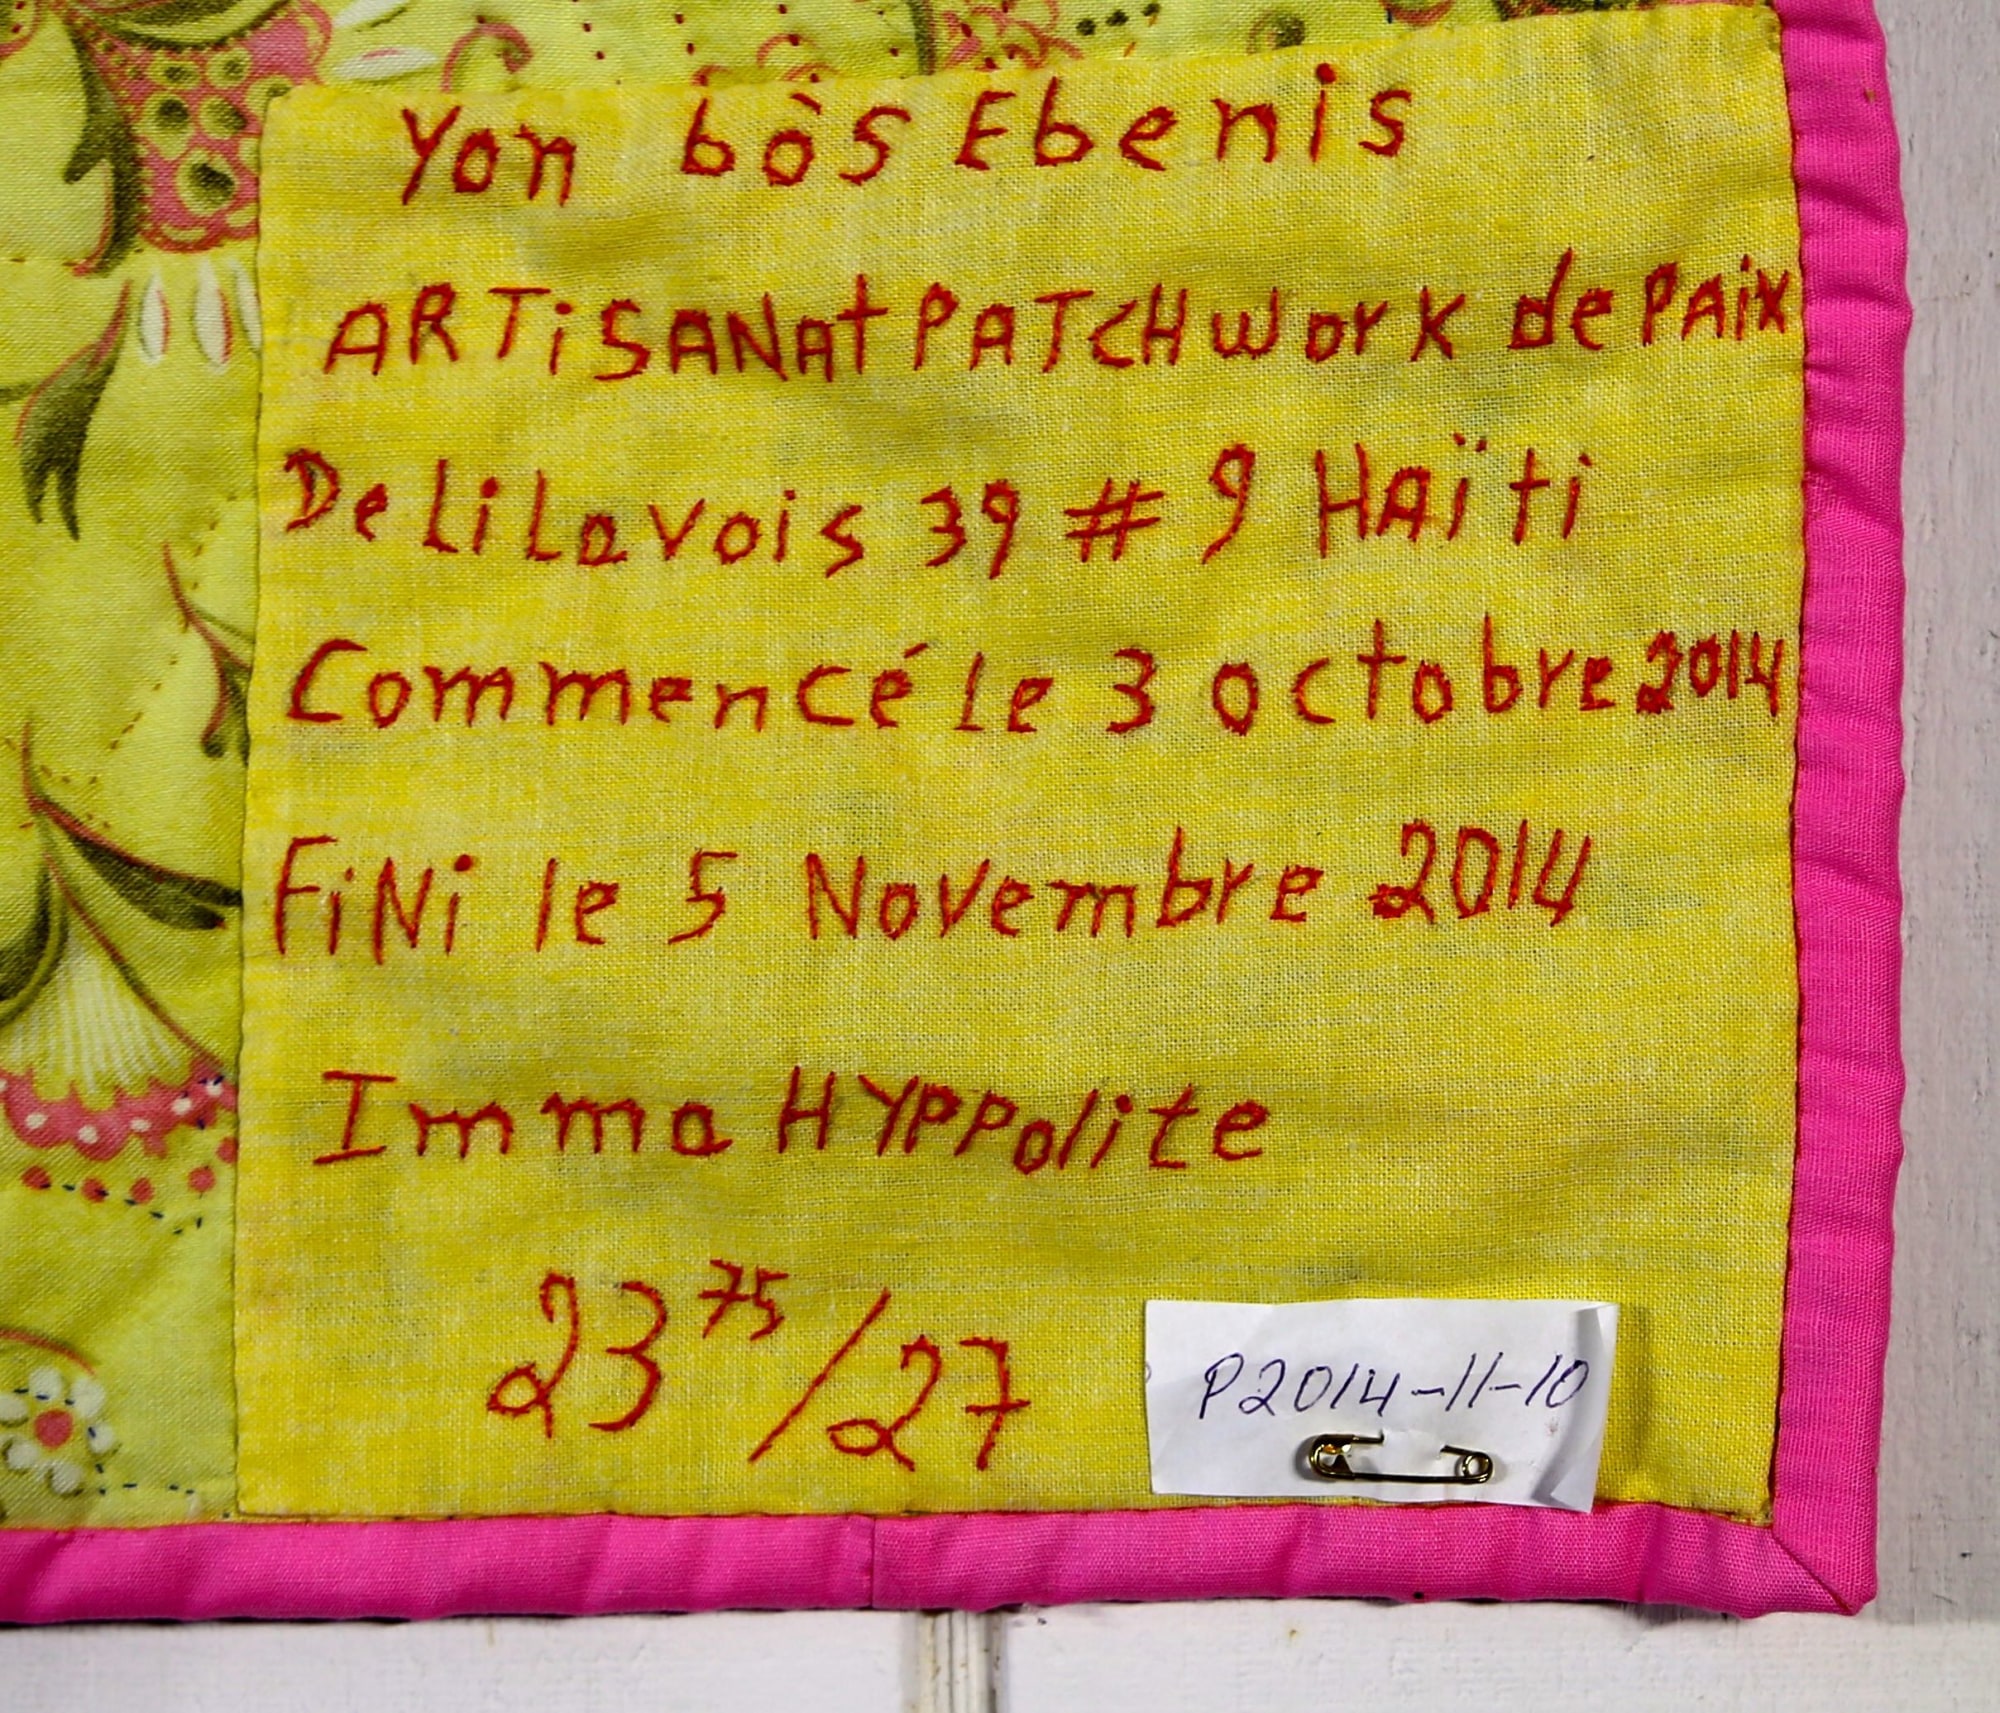 Yon bòs Ebenis
ARTiSANAt PATCHwork de PAix
DeliLavois 39 # 9 HAïti
Commencé le 3 octobre 2014
FiNi le 5 Novembre 2014
Imma HYPPolite
23 75/27
P2014-11-10